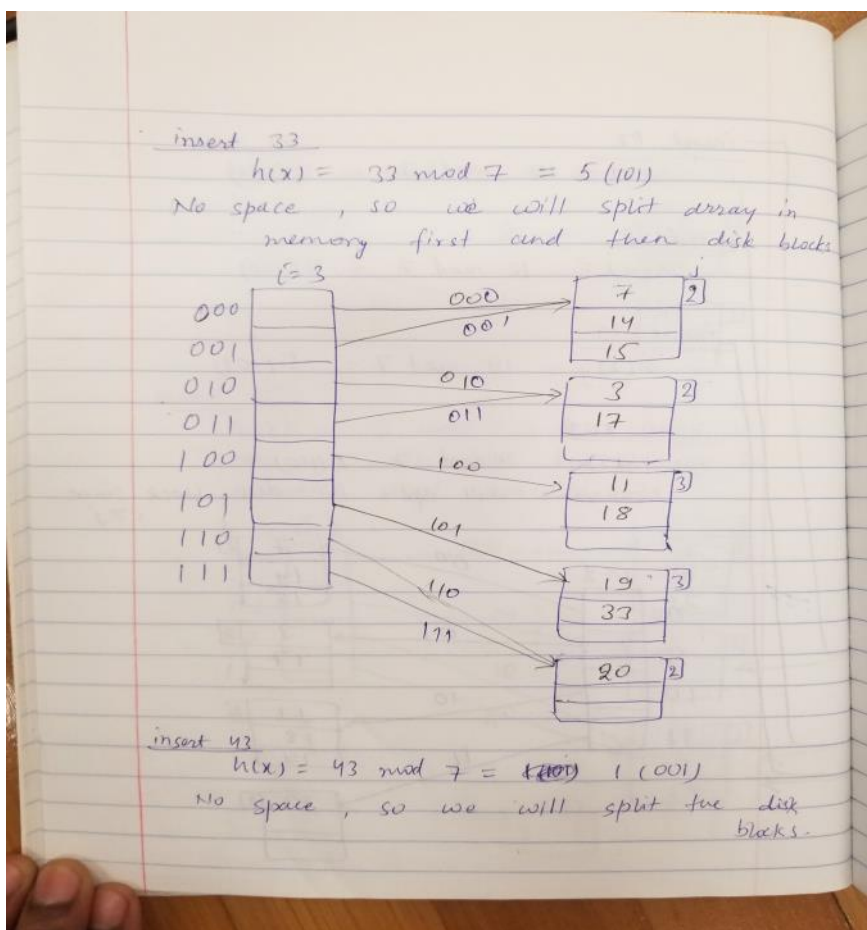 insert 33
h(x) = 33 mod 7 = 5 (101)
No space, so we will split array in
memory first and then disk blocks
i = 3
j
000
001
010
011
100
101
110
111
000
001
010
011
100
101
110
111
7 2
14
15
3 2
17
11 3
18
19 3
33
20 2
insert 43
h(x) = 43 mod 7 = 1 (001)
No space, so we will split the disk
blocks.